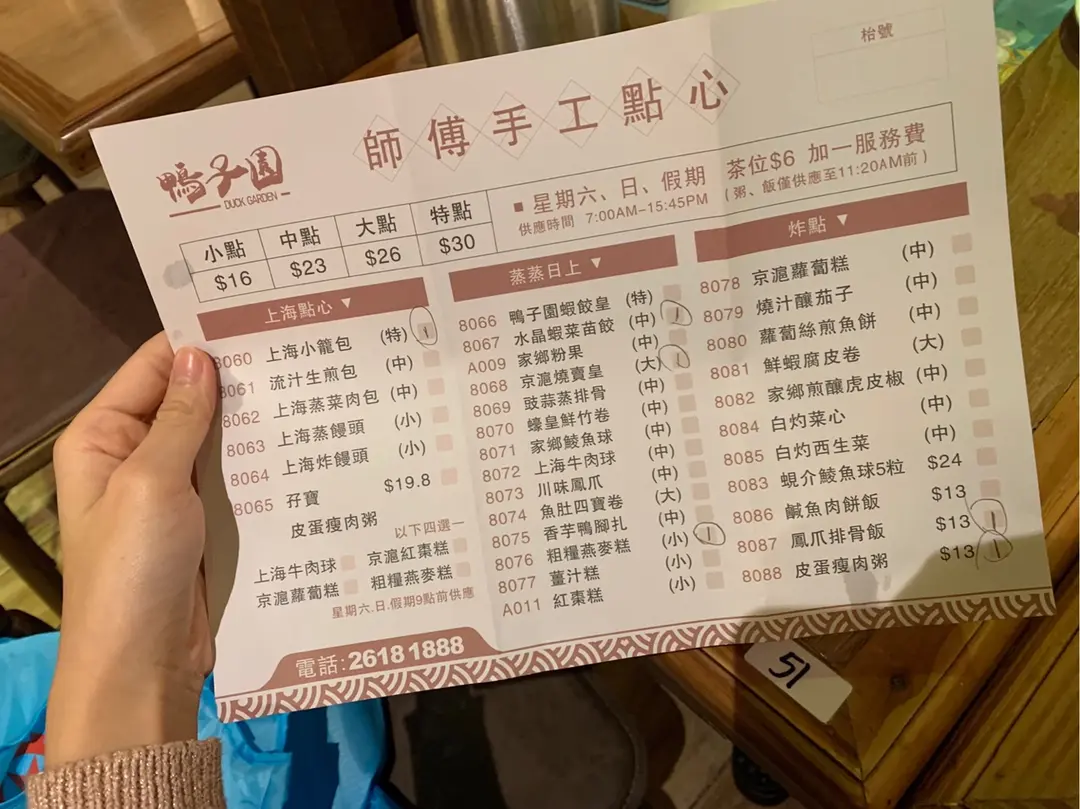 枱號
師傅手工點心
鴨子園
DUCK GARDEN
小點 中點 大點 特點
$16 $23 $26 $30
■ 星期六、日、假期 茶位$6 加一服務費
供應時間 7:00AM-15:45PM (粥、飯僅供應至11:20AM前)
上海點心▼
8060 上海小籠包 (特)
8061 流汁生煎包 (中)
8062 上海蒸菜肉包 (中)
8063 上海蒸饅頭 (小)
8064 上海炸饅頭 (小)
8065 孖寶 $19.8
皮蛋瘦肉粥
以下四選一
上海牛肉球 京滬紅棗糕
京滬蘿蔔糕 粗糧燕麥糕
星期六.日.假期9點前供應
蒸蒸日上▼
8066 鴨子園蝦餃皇 (特)
8067 水晶蝦菜苗餃 (中)
A009 家鄉粉果 (中)
8068 京滬燒賣皇 (大)
8069 豉蒜蒸排骨 (中)
8070 蠔皇鮮竹卷 (中)
8071 家鄉鯪魚球 (中)
8072 上海牛肉球 (中)
8073 川味鳳爪 (中)
8074 魚肚四寶卷 (大)
8075 香芋鴨腳扎 (中)
8076 粗糧燕麥糕 (小)
8077 薑汁糕 (小)
A011 紅棗糕 (小)
炸點▼
8078 京滬蘿蔔糕 (中)
8079 燒汁釀茄子 (中)
8080 蘿蔔絲煎魚餅 (中)
8081 鮮蝦腐皮卷 (大)
8082 家鄉煎釀虎皮椒 (中)
8084 白灼菜心 (中)
8085 白灼西生菜 (中)
8083 蜆介鯪魚球5粒 $24
8086 鹹魚肉餅飯 $13
8087 鳳爪排骨飯 $13
8088 皮蛋瘦肉粥 $13
電話:2618 1888
51